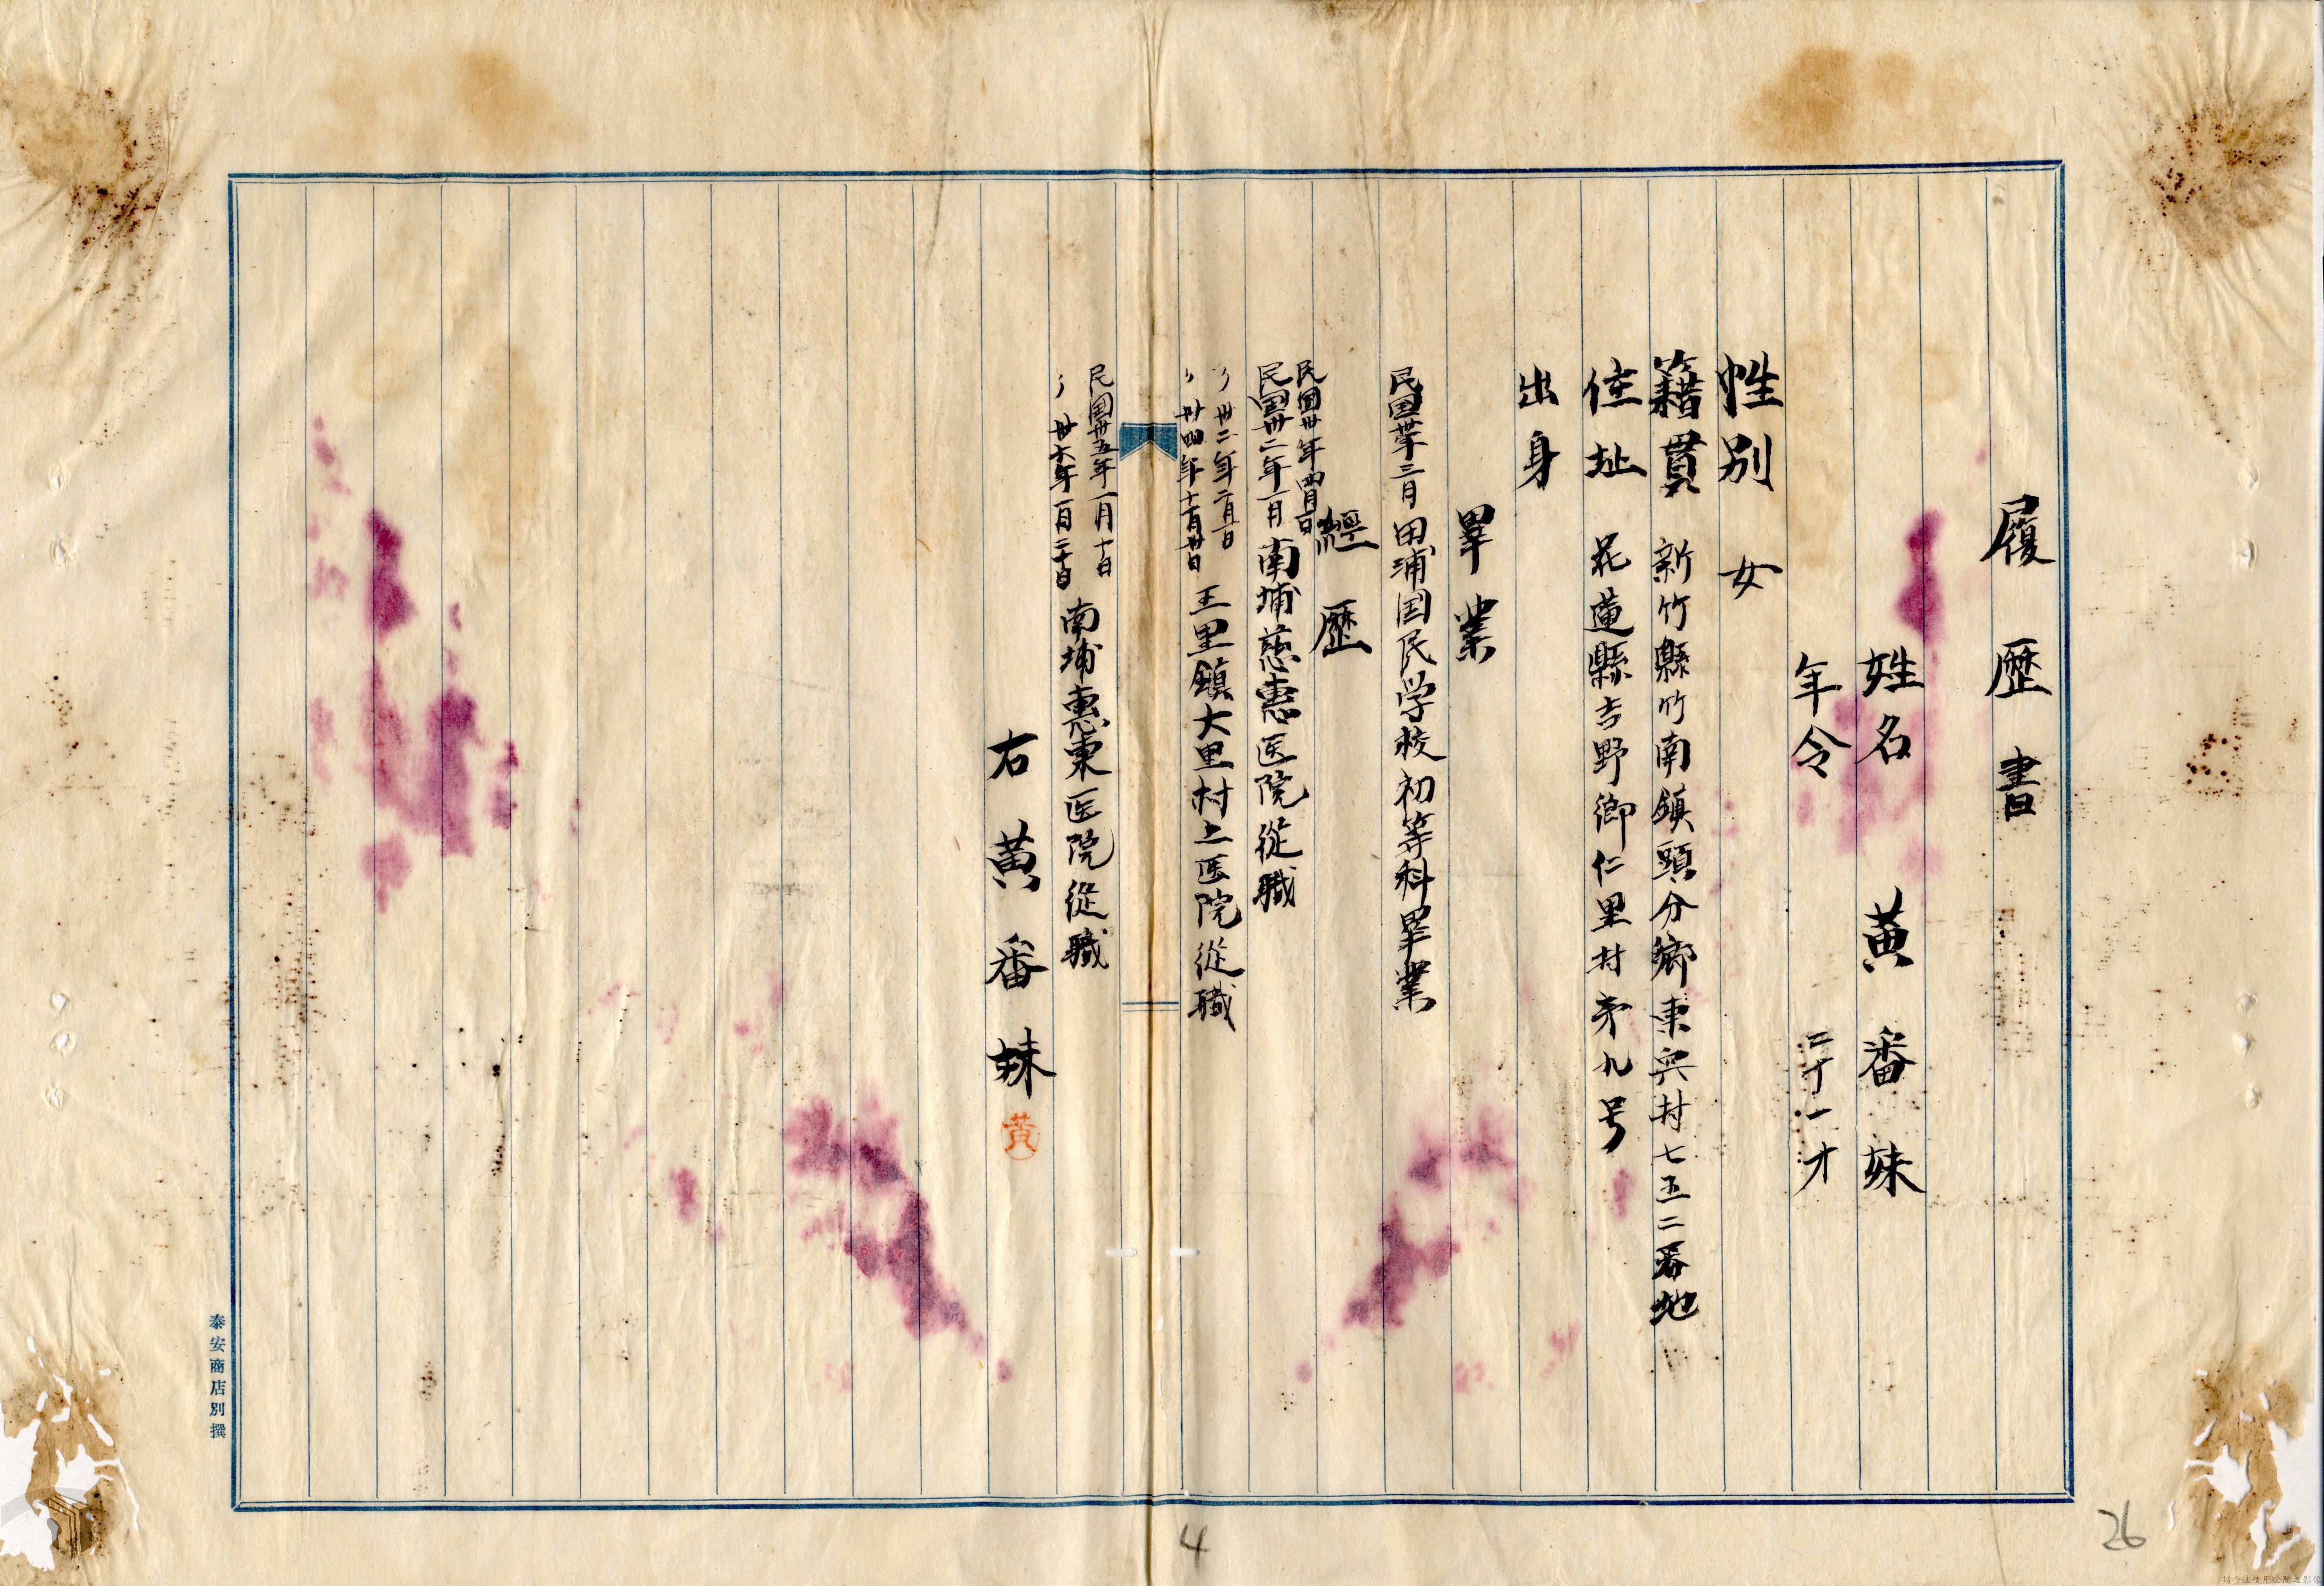 履歷書
姓名 黃番妹
年令 二十一才
性別 女
籍貫 新竹縣竹南鎮頭分鄉東兴村七五二番地
住址 花蓮縣吉野鄉仁里村第九号
出身
畢業
民国卅年三月 田浦国民学校初等科畢業
經歷
民国卅年四月一日
民国卅二年一月 南埔慈惠医院從職
〃卅二年二月一日
〃卅四年十一月廿日 玉里鎮大里村上医院從職
民国卅五年一月十日
〃卅六年一月二十日 南埔惠東医院從職
右 黃番妹
黃
泰安商店別撰
4
26